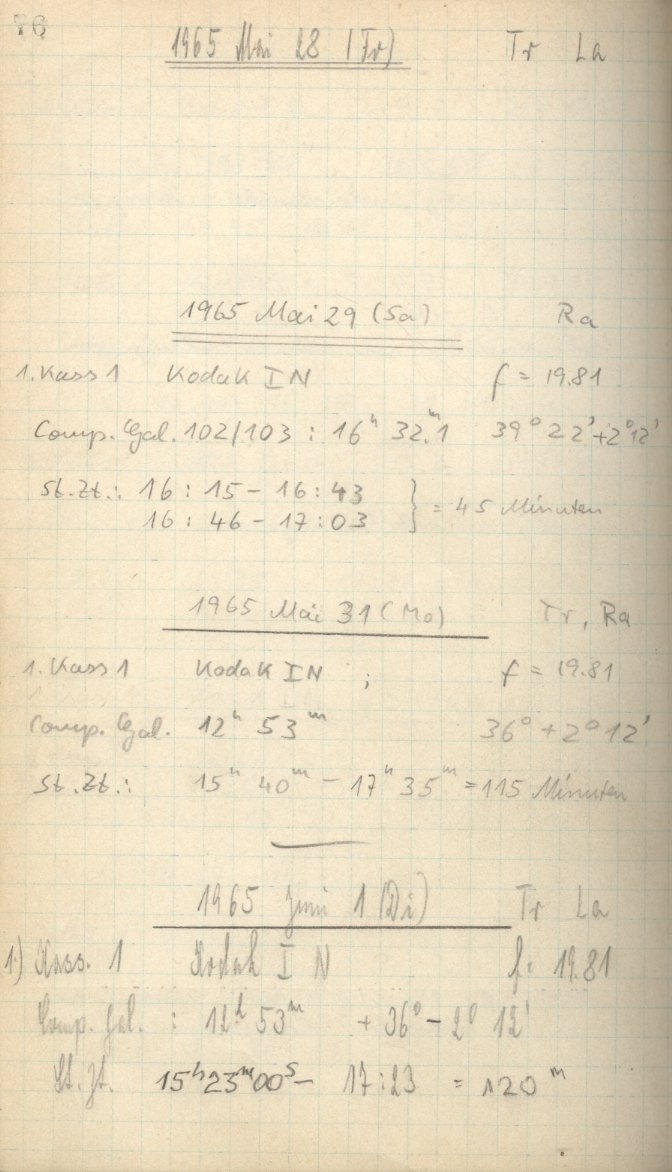 76
1965 Mai 28 (Fr) Tr La
1965 Mai 29 (Sa) Ra
1. Kass 1 Kodak I N f = 19.81
Comp. Gal. 102/103 : 16ʰ 32ᵐ.1 39° 22' + 2° 12'
St.Zt.: 16 : 15 – 16 : 43
16 : 46 – 17 : 03 } = 45 Minuten
1965 Mai 31 (Mo) Tr, Ra
1. Kass 1 Kodak I N ; f = 19.81
Comp. Gal. 12ʰ 53ᵐ 36° + 2° 12'
St.Zt.: 15ʰ 40ᵐ – 17ʰ 35ᵐ = 115 Minuten
1965 Juni 1 (Di) Tr La
1) Kass. 1 Kodak I N f = 19.81
Comp. Gal. : 12ʰ 53ᵐ + 36° – 2° 12'
St. Zt. 15ʰ23ᵐ00ˢ – 17:23 = 120ᵐ